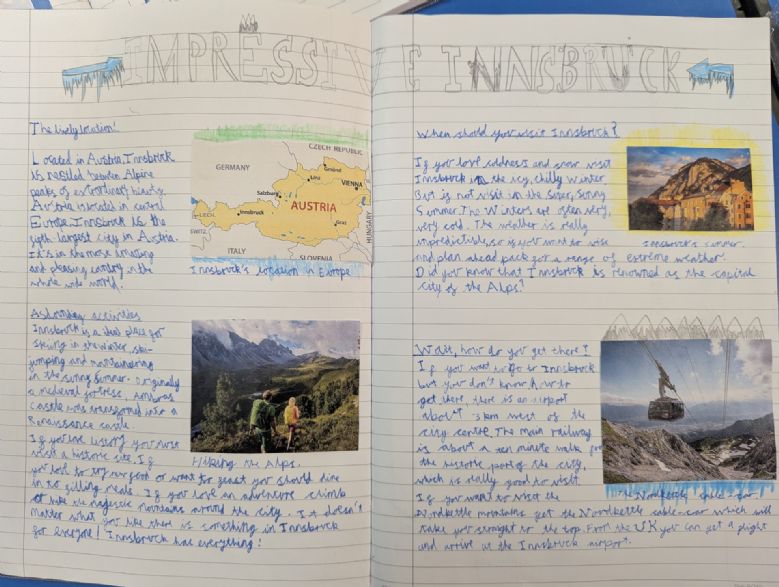 IMPRESSIVE INNSBRUCK
The lively location!
Located in Austria, Innsbruck
is nestled between Alpine
peaks of extraordinary beauty.
Austria is located in central
Europe. Innsbruck is the
fifth largest city in Austria.
It's in the most amazing
and pleasing country in the
whole, wide world!
GERMANY
CZECH REPUBLIC
Gmünd
Linz
VIENNA
Salzburg
AUSTRIA
Innsbruck
Graz
LIECH.
SWITZ.
ITALY
SLOVENIA
HUNGARY
Innsbruck's location in Europe
activities
Innsbruck is a ideal place for
skiing in the winter, ski-
jumping and mountaineering
in the sunny summer. Originally
a medieval fortress, Ambras
Castle was transformed into a
Renaissance castle.
If you love history you must
visit a historic site. If
you look to try new food or want to feast you should dine
in its filling meals. If you love an adventure climb
the majestic mountains around the city. It doesn't
matter what you like there is something in Innsbruck
for everyone! Innsbruck has everything!
Hiking the Alps.
When should you visit Innsbruck?
If you love coldness and snow visit
Innsbruck in the icy, chilly winter.
But is not visit in the super, sunny
Summer. The Winters are often very,
very cold. The weather is really
so if you want to wise
and plan ahead pack for a range of extreme weather.
Did you know that Innsbruck is renowned as the capital
city of the Alps?
Innsbruck's summer.
Wait, how do you get there?
If you want to go to Innsbruck
but you don't know how to
get there, there is an airport
about 3km west of the
city centre. The main railway
is about a ten minute walk for
the historic part of the city,
which is really good to visit.
If you want to visit the
Nordkette mountains get the Nordkette cable-car which will
take you straight to the top. From the UK you can get a flight
and arrive at the Innsbruck airport.
The Nordkette cable-car